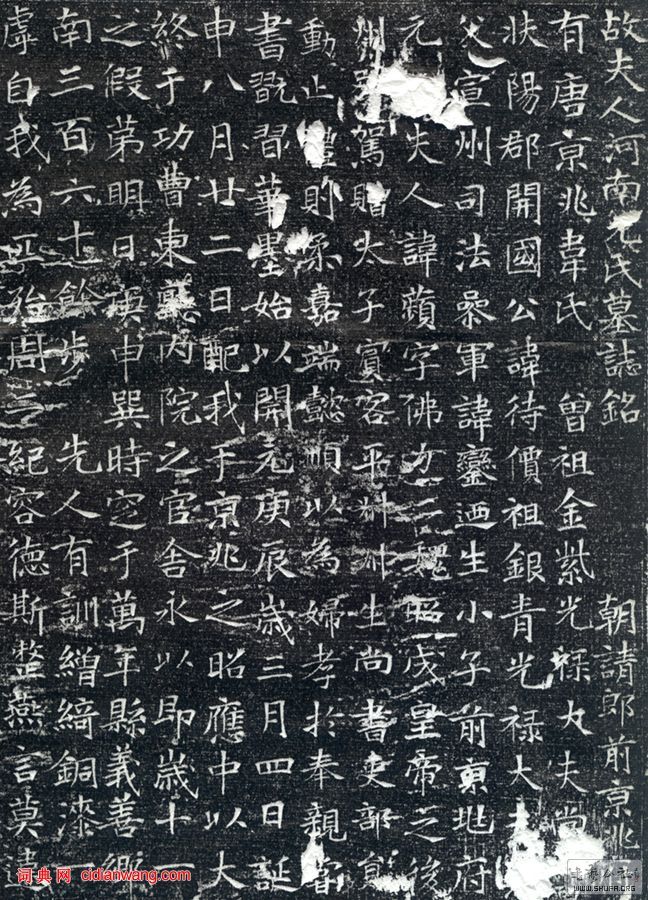 故夫人河南元氏墓誌銘 朝請郎前京兆
有唐京兆韋氏 曾祖金紫光祿大夫尚
扶陽郡開國公諱待價祖銀青光祿大夫
父宣州司法叅軍諱鑾迺生小子前京兆府
元夫人諱蘋字佛力二魏昭成皇帝之後
州 駕贈太子賓客平 州生尚書吏部
動止 則柔嘉端懿順以為婦孝於奉親
書翫習華墨始以開元庚辰歲三月四日誕
申八月廿二日配我于京兆之昭應中以大
終于功曹東廳內院之官舍永以即歲十一
之假第明日庚申巽時窆于萬年縣義善鄉
南三百六十餘步 先人有訓繒綺銅漆一
虛自我為匹殆周二紀容德斯整燕言莫違
词典网 cidianwang.com
WWW.SHUFA.ORG